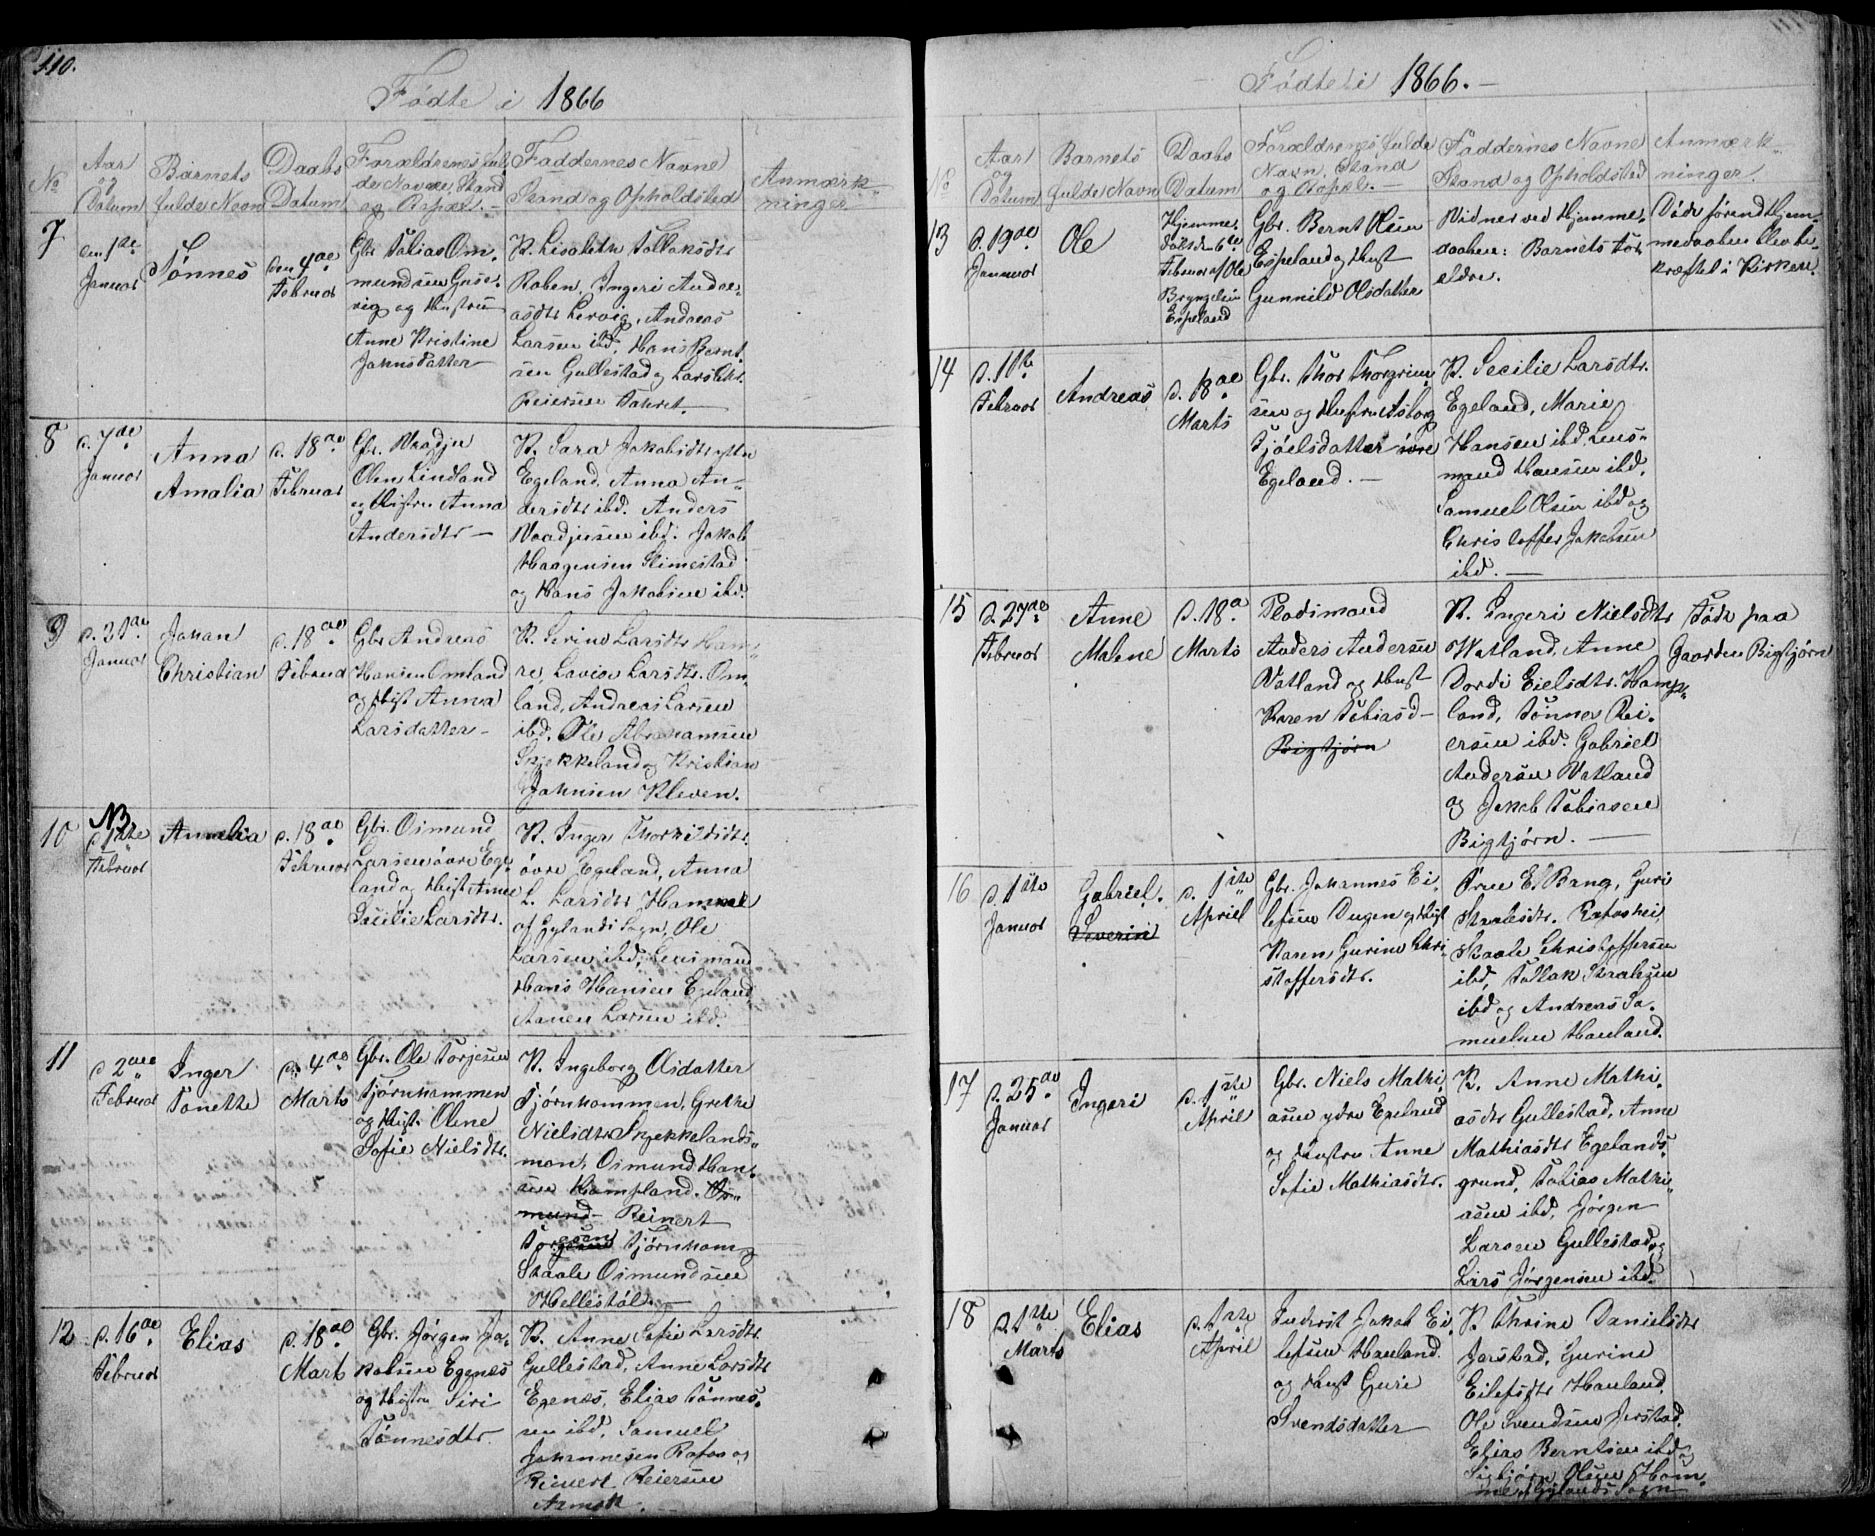 110.
Fødte i 1866
No
Aar og Datum
Barnets fulde Navn
Daabs Datum
Forældrenes fulde Navne, Stand og Bopæl.
Faddernes Navne Stand og Opholdsted
Anmærkninger
7
den 1de Januar
Tønnes
den 4de Februar
Gbr Tobias Om-
mundsen
og Hustru
Anne Kristine
Johnsdatter
K. Lisabeth Tollaksdtr
Roben, Ingeri Andre-
asdtr Lervig, Andreas
Larsen ibd, Hans Bernt-
sen Gullestad og Lars
Reiersen
8
d. 7de Januar
Anna
Amalia
d. 18de Februar
Gbr. Vaadju
Olsen Lindland
og Hustru Anna
Andersdtr
K. Sara Jakobsdtr ytre
Egeland, Anna An-
dersdtr ibd. Anders
Vaadjusen ibd. Jakob
Haagensen Slimestad
og Hans Jakobsen ibd.
9
d. 21de Januar
Johan
Christian
d. 18de Februar
Gbr Andreas
Hansen Omland
og Hust Anna
Larsdatter
K. Serine Larsdtr Ham-
re, Lavise Larsdtr. Om-
land, Andreas Larsen
ibd, Ole Abrahamsen
Skjekkeland og Kristian
Johnsen Kleven.
10
NB
d. 1ste Februar
Amalia
d. 18de Februar
Gbr. Osmund
Larsen övre Ege-
land og Hust Anne
Sicilie Larsdtr.
K. Inger Thorkildsdtr.
övre Egeland, Anna
L. Larsdtr Hamre
af Gylands Sogn, Ole
Larsen ibd, Lensmand
Hans Hansen Egeland
Aanen Larsen ibd.
11
d. 2den Februar
Inger
Tonette
d. 4de Marts
Gbr. Ole Torjesen
Tjørnhommen
og Hust. Oline
Sofie Nielsdtr.
K. Ingeborg Olsdatter
Tjørnhommen, Grethe
Nielsdtr Skjekkelands-
moen, Osmund Han-
sen Hompland. Os-
mund Reinert
Torgesen Tjørnhom
Staale Osmundsen
Hellestöl.
12
d. 16de Februar
Elias
d. 18de Marts
Gbr. Jørgen Ja-
kobsen Egenes
og Hustru Siri
Tønnesdtr.
K. Anne Sofie Larsdtr.
Gullestad, Anne Larsdtr
Egenæs, Elias Tønnes-
sen ibd, Samuel
Johannesen Rafos og
Reinert Reiersen
111
Fødte i 1866.
No
Aar og Datum
Barnets fulde Navn
Daabs Datum
Forældrenes fulde Navn, Stand og Bopæl.
Faddernes Navne Stand og Opholdsted
Anmærkninger.
13
d. 19de Januar
Ole
Hjemme-
døbt d. 6te
Februar af Ole
Bryngelsen
Espeland
Gbr. Bernt Olsen
Espeland og Hust
Gunnild Olsdatter
Vidner ved Hjemme-
daaben: Barnets For-
eldre.
Døde førend Hjem-
medaaben blev be-
kræftet i Kirken.
14
d. 11te Februar
Andreas
d. 18de Marts
Gbr. Thor Thorgrim-
sen og Hustru Asborg
Kjöelsdatter övre
Egeland.
K. Secilie Larsdtr.
Egeland, Marie
Hansen ibd, Lens-
mand Hansen ibd,
Samuel Olsen ibd og
Christoffer Jakobsen
ibd.
15
d. 27de Februar
Anne
Malene
d. 18de Marts
Pladsmand
Anders Andersen
Vatland og Hust
Karen Tobiasd
Bigtjørn
K. Ingeri Nielsdtr
Watland, Anne
Dordi Eielsdtr. Homp-
land, Tønnes Rei-
ersen ibd. Gabriel
Andersen Vatland
og Jakob Tobiasen
Bigtjørn.
Födt paa
Gaarden Bigtjørn
16
d. 1ste Januar
Gabriel.
Severin
d. 1ste Apriel
Gbr. Johannes Ei-
lefsen Dugen og Hust
Karen Gurine Chri-
stoffersdtr.
Frue El Bang, Guri
Staalesdtr. Rafoshei
Staale Christoffersen
ibd, Tollak Staalesen
ibd og Andreas Sa-
muelsen Hauland.
17
d. 25de Januar
Ingeri
d. 1ste April
Gbr. Niels Mathi-
asen ydre Egeland
og Hustru Anne
Sofie Mathiasdtr.
K. Anne Mathi-
asdtr Gullestad, Anne
Mathiasdtr Egelands-
grund, Tobias Mathi-
asen ibd, Jørgen
Larsen Gullestad og
Lars Jørgensen ibd.
18
d. 1ste Marts
Elias
d. 1ste Apriel
Inderst Jakob Ei-
lefsen Hauland
og Hust Guri
Svendsdatter
K. Thrine Danielsdtr
Jerstad, Gurine
Eilefsdtr Hauland,
Ole Svendsen Jerstad,
Elias Berntsen ibd og
Sigbjørn Olsen Hom-
me, Gylands Sogn